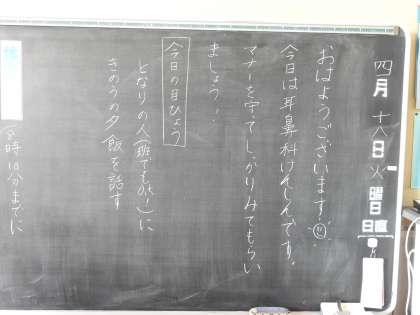 四月十八日火曜日
日直
おはようございます。
今日は耳鼻科けんしんです。
マナーを守ってしっかりみてもらい
ましょう!
今日の目ひょう
となりの人(班でもOK!)に
きのうの夕飯を話す
時10分までに